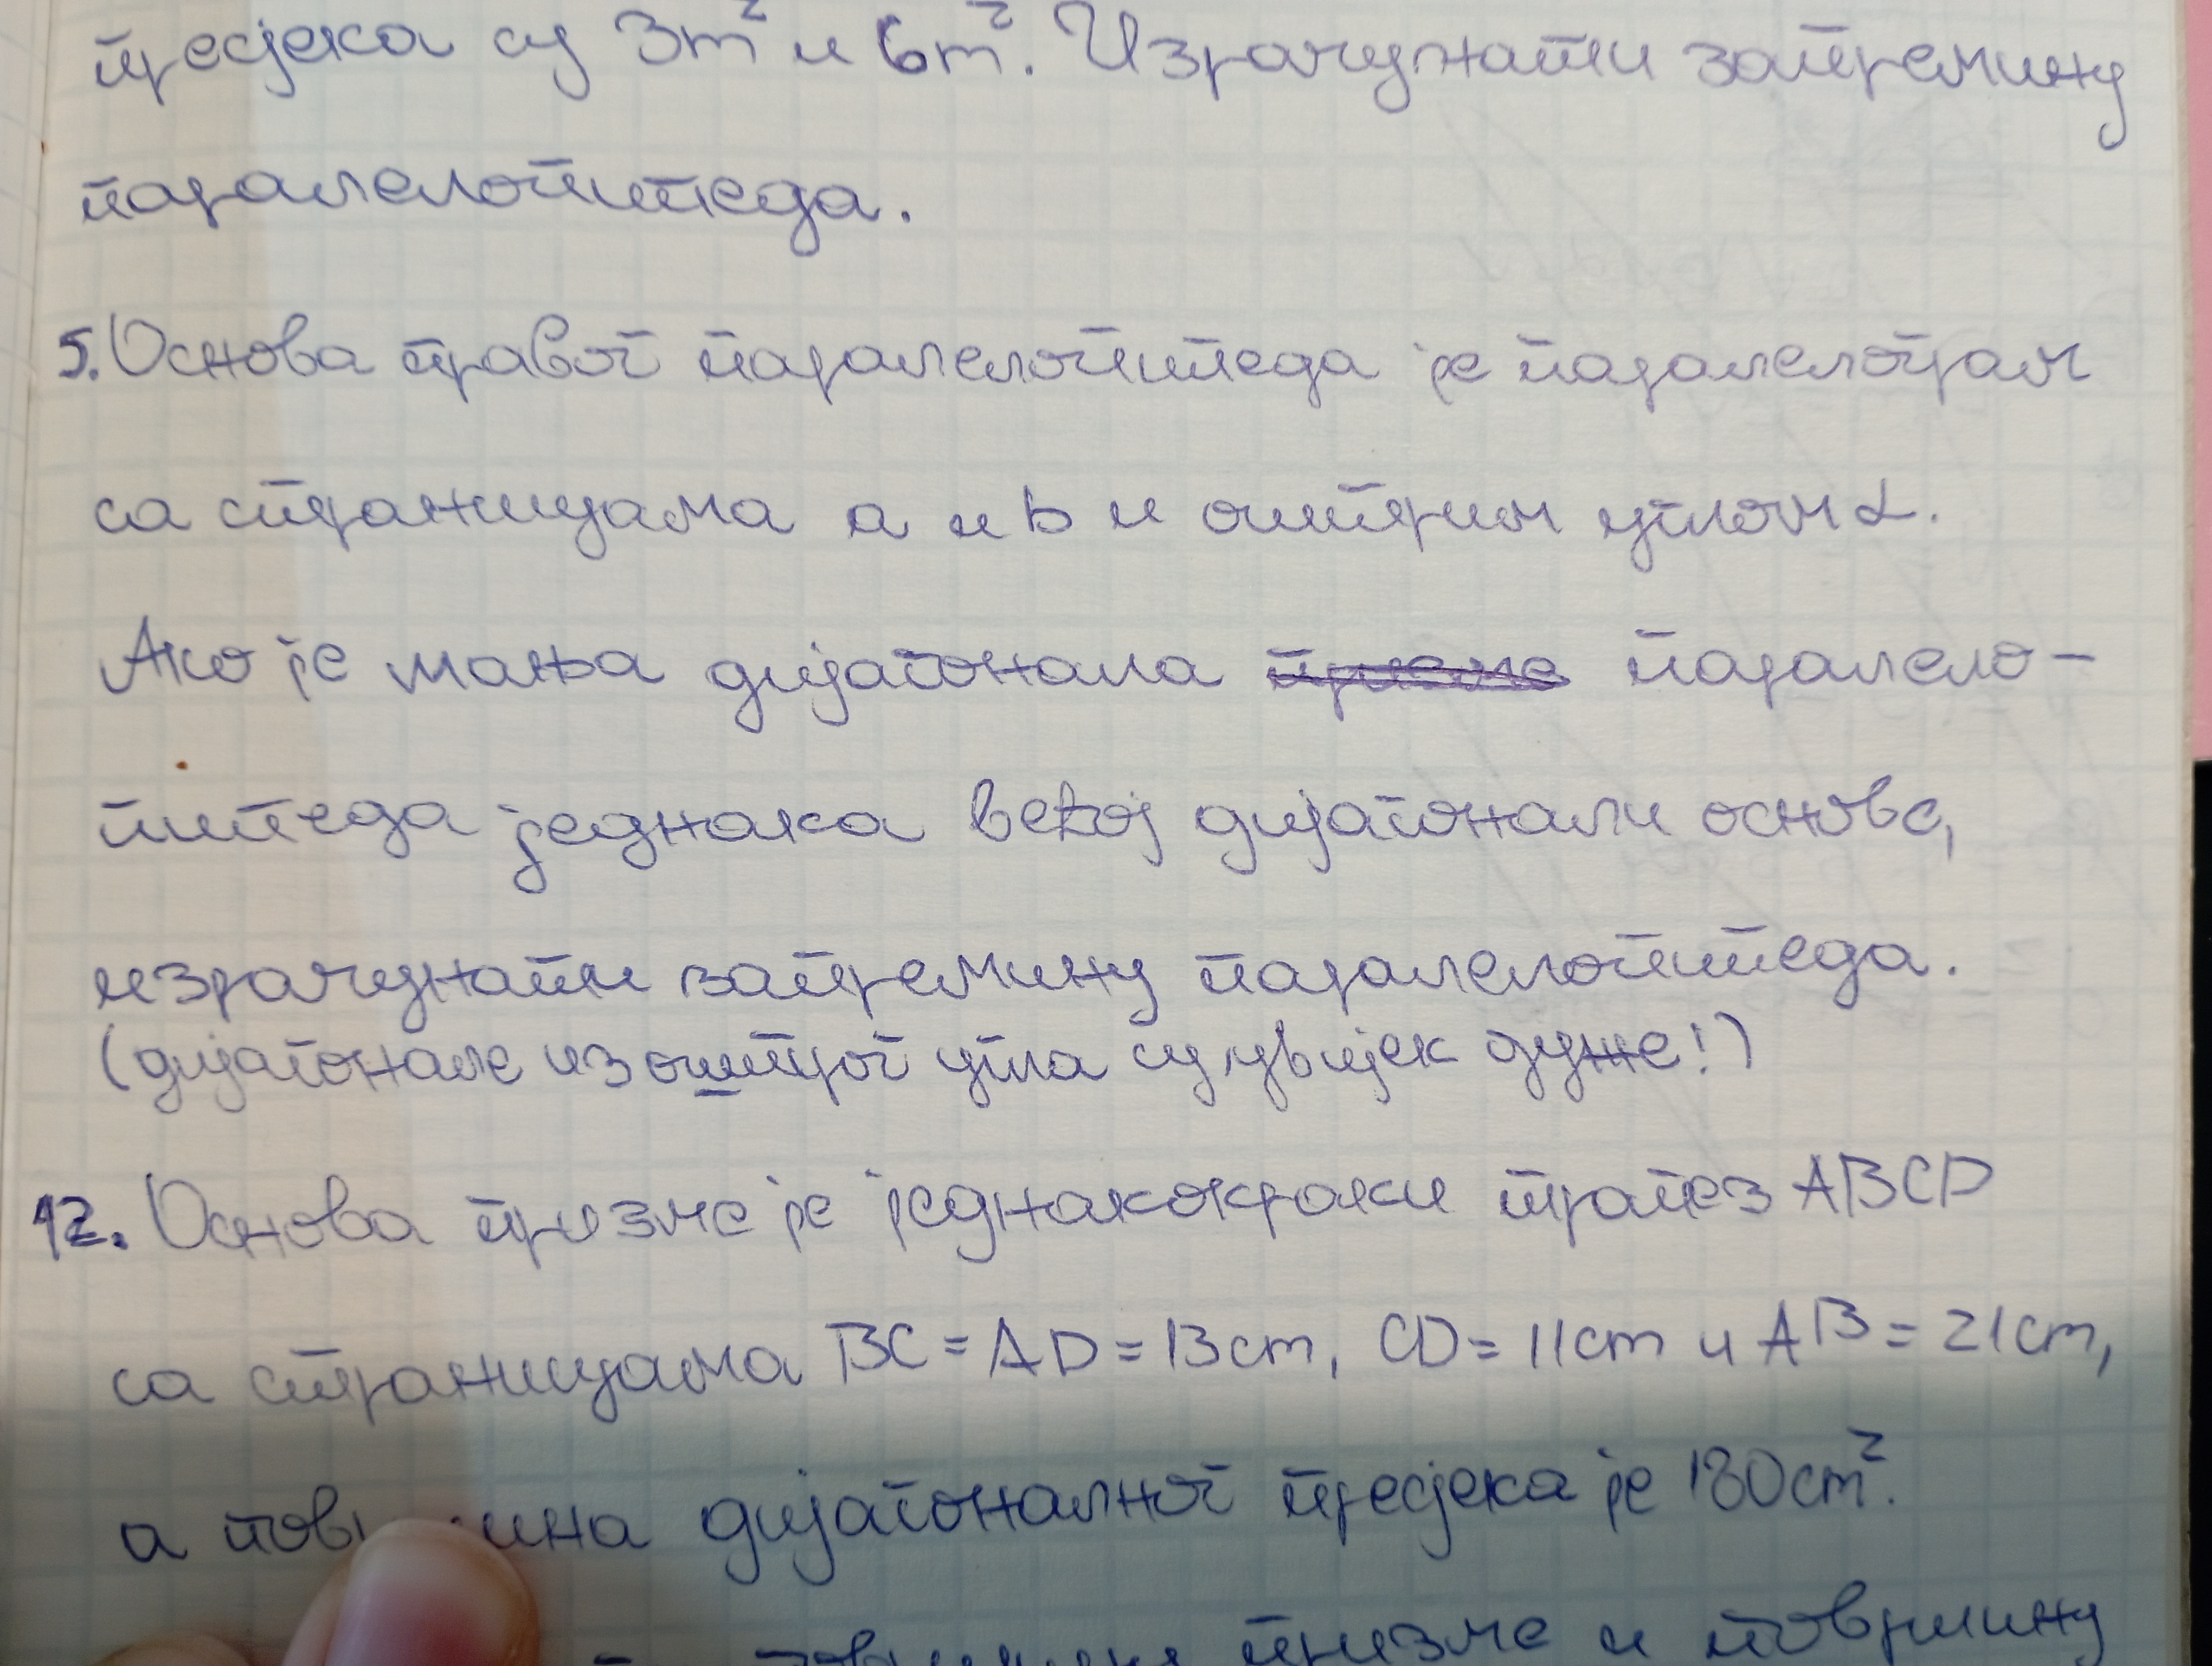 пресјека су 3m² и 6m². Израчунати запремину
паралелопипеда.
5. Основа правог паралелопипеда је паралелограм
са страницама a и b и оштрим углом α.
Ако је мања дијагонала призме паралело-
пипеда једнака већој дијагонали основе,
израчунати запремину паралелопипеда.
(дијагонале из оштрог угла су увијек дуже!)
12. Основа призме је једнакокраки трапез ABCD
са страницама BC = AD = 13cm, CD = 11cm и AB = 21cm,
а дијагоналног пресјека је 180cm².
призме и површину